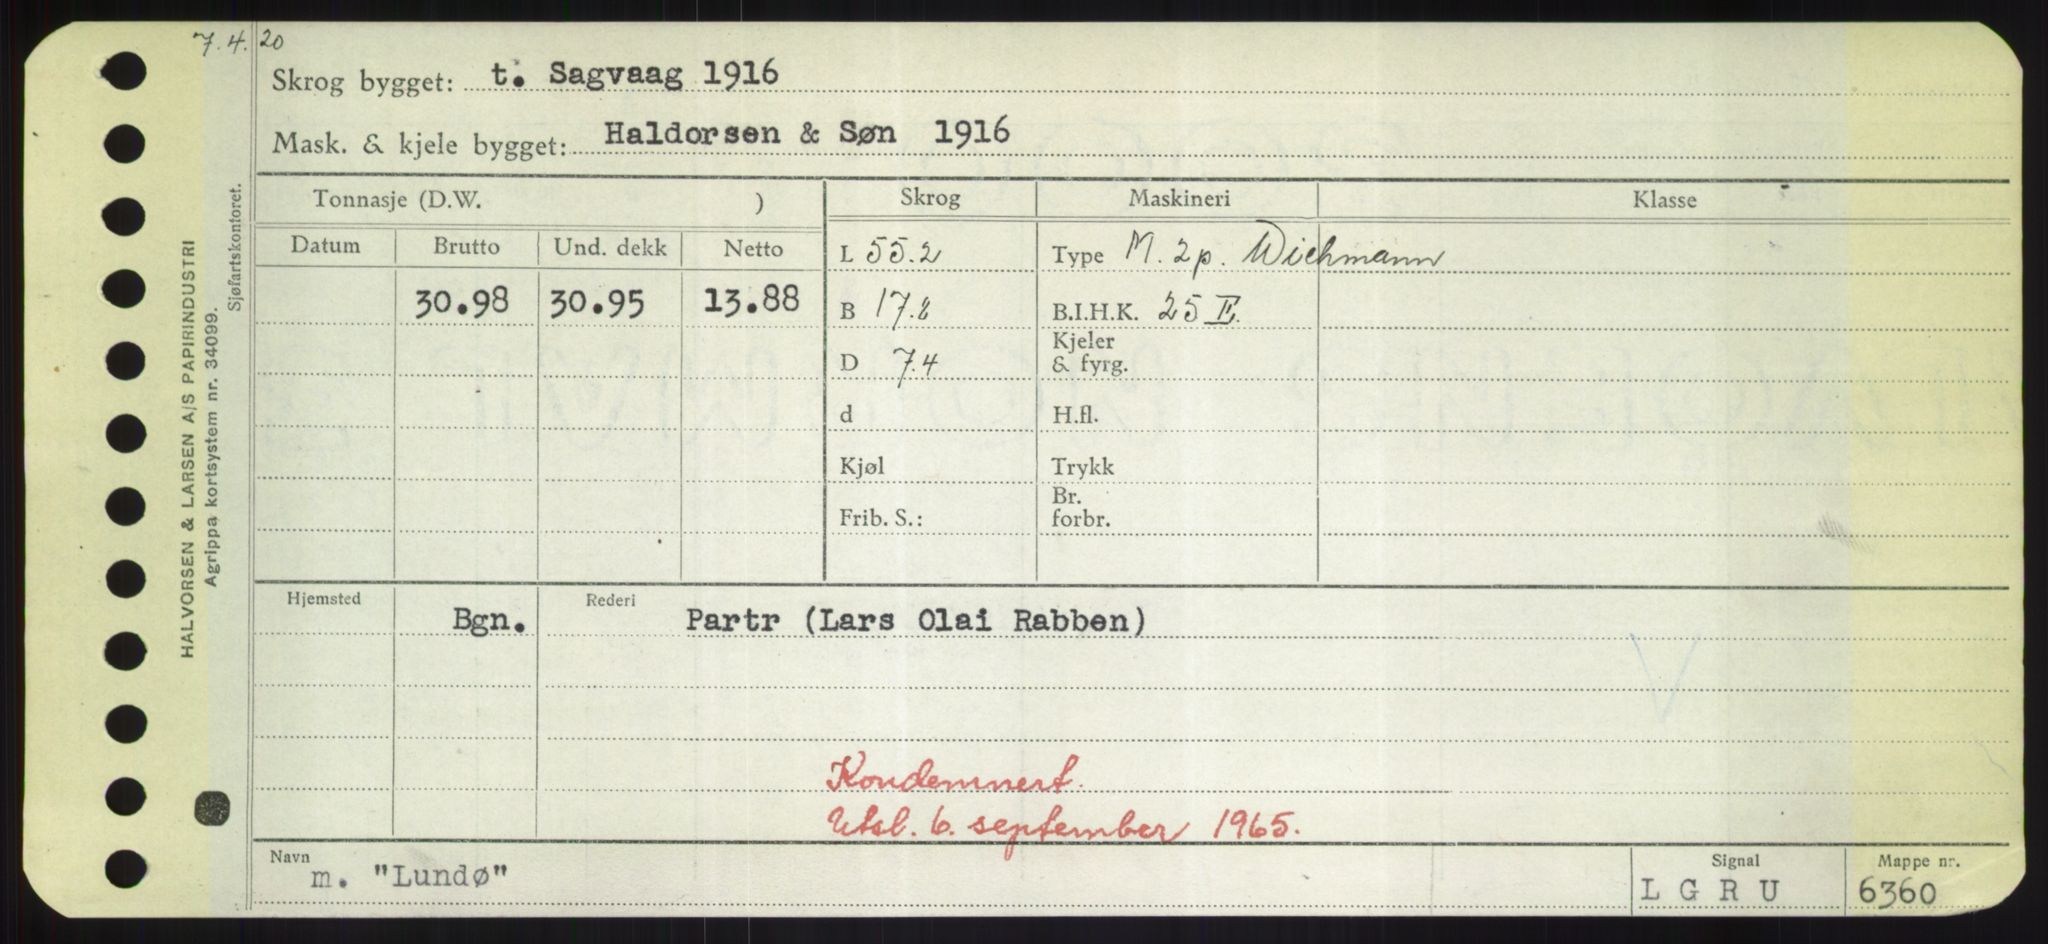 7.4.20
Skrog bygget: t. Sagvaag 1916
Mask. & kjele bygget: Haldorsen & Søn 1916
HALVORSEN & LARSEN A/S PAPIRINDUSTRI
Agrippa kortsystem nr. 34099.
Sjøfartskontoret.
Tonnasje (D.W. ) Skrog Maskineri Klasse
Datum Brutto Und. dekk Netto
L 55.2 Type M. 2p. Wichmann
30.98 30.95 13.88 B 17.2 B.I.H.K. 25 E.
Kjeler
D 7.4 & fyrg.
d H.fl.
Kjøl Trykk
Br.
Frib. S.: forbr.
Hjemsted Rederi
Bgn. Partr (Lars Olai Rabben)
Kondemnert.
Utsl. 6. september 1965.
Navn Signal Mappe nr.
m. "Lundø" L G R U 6360